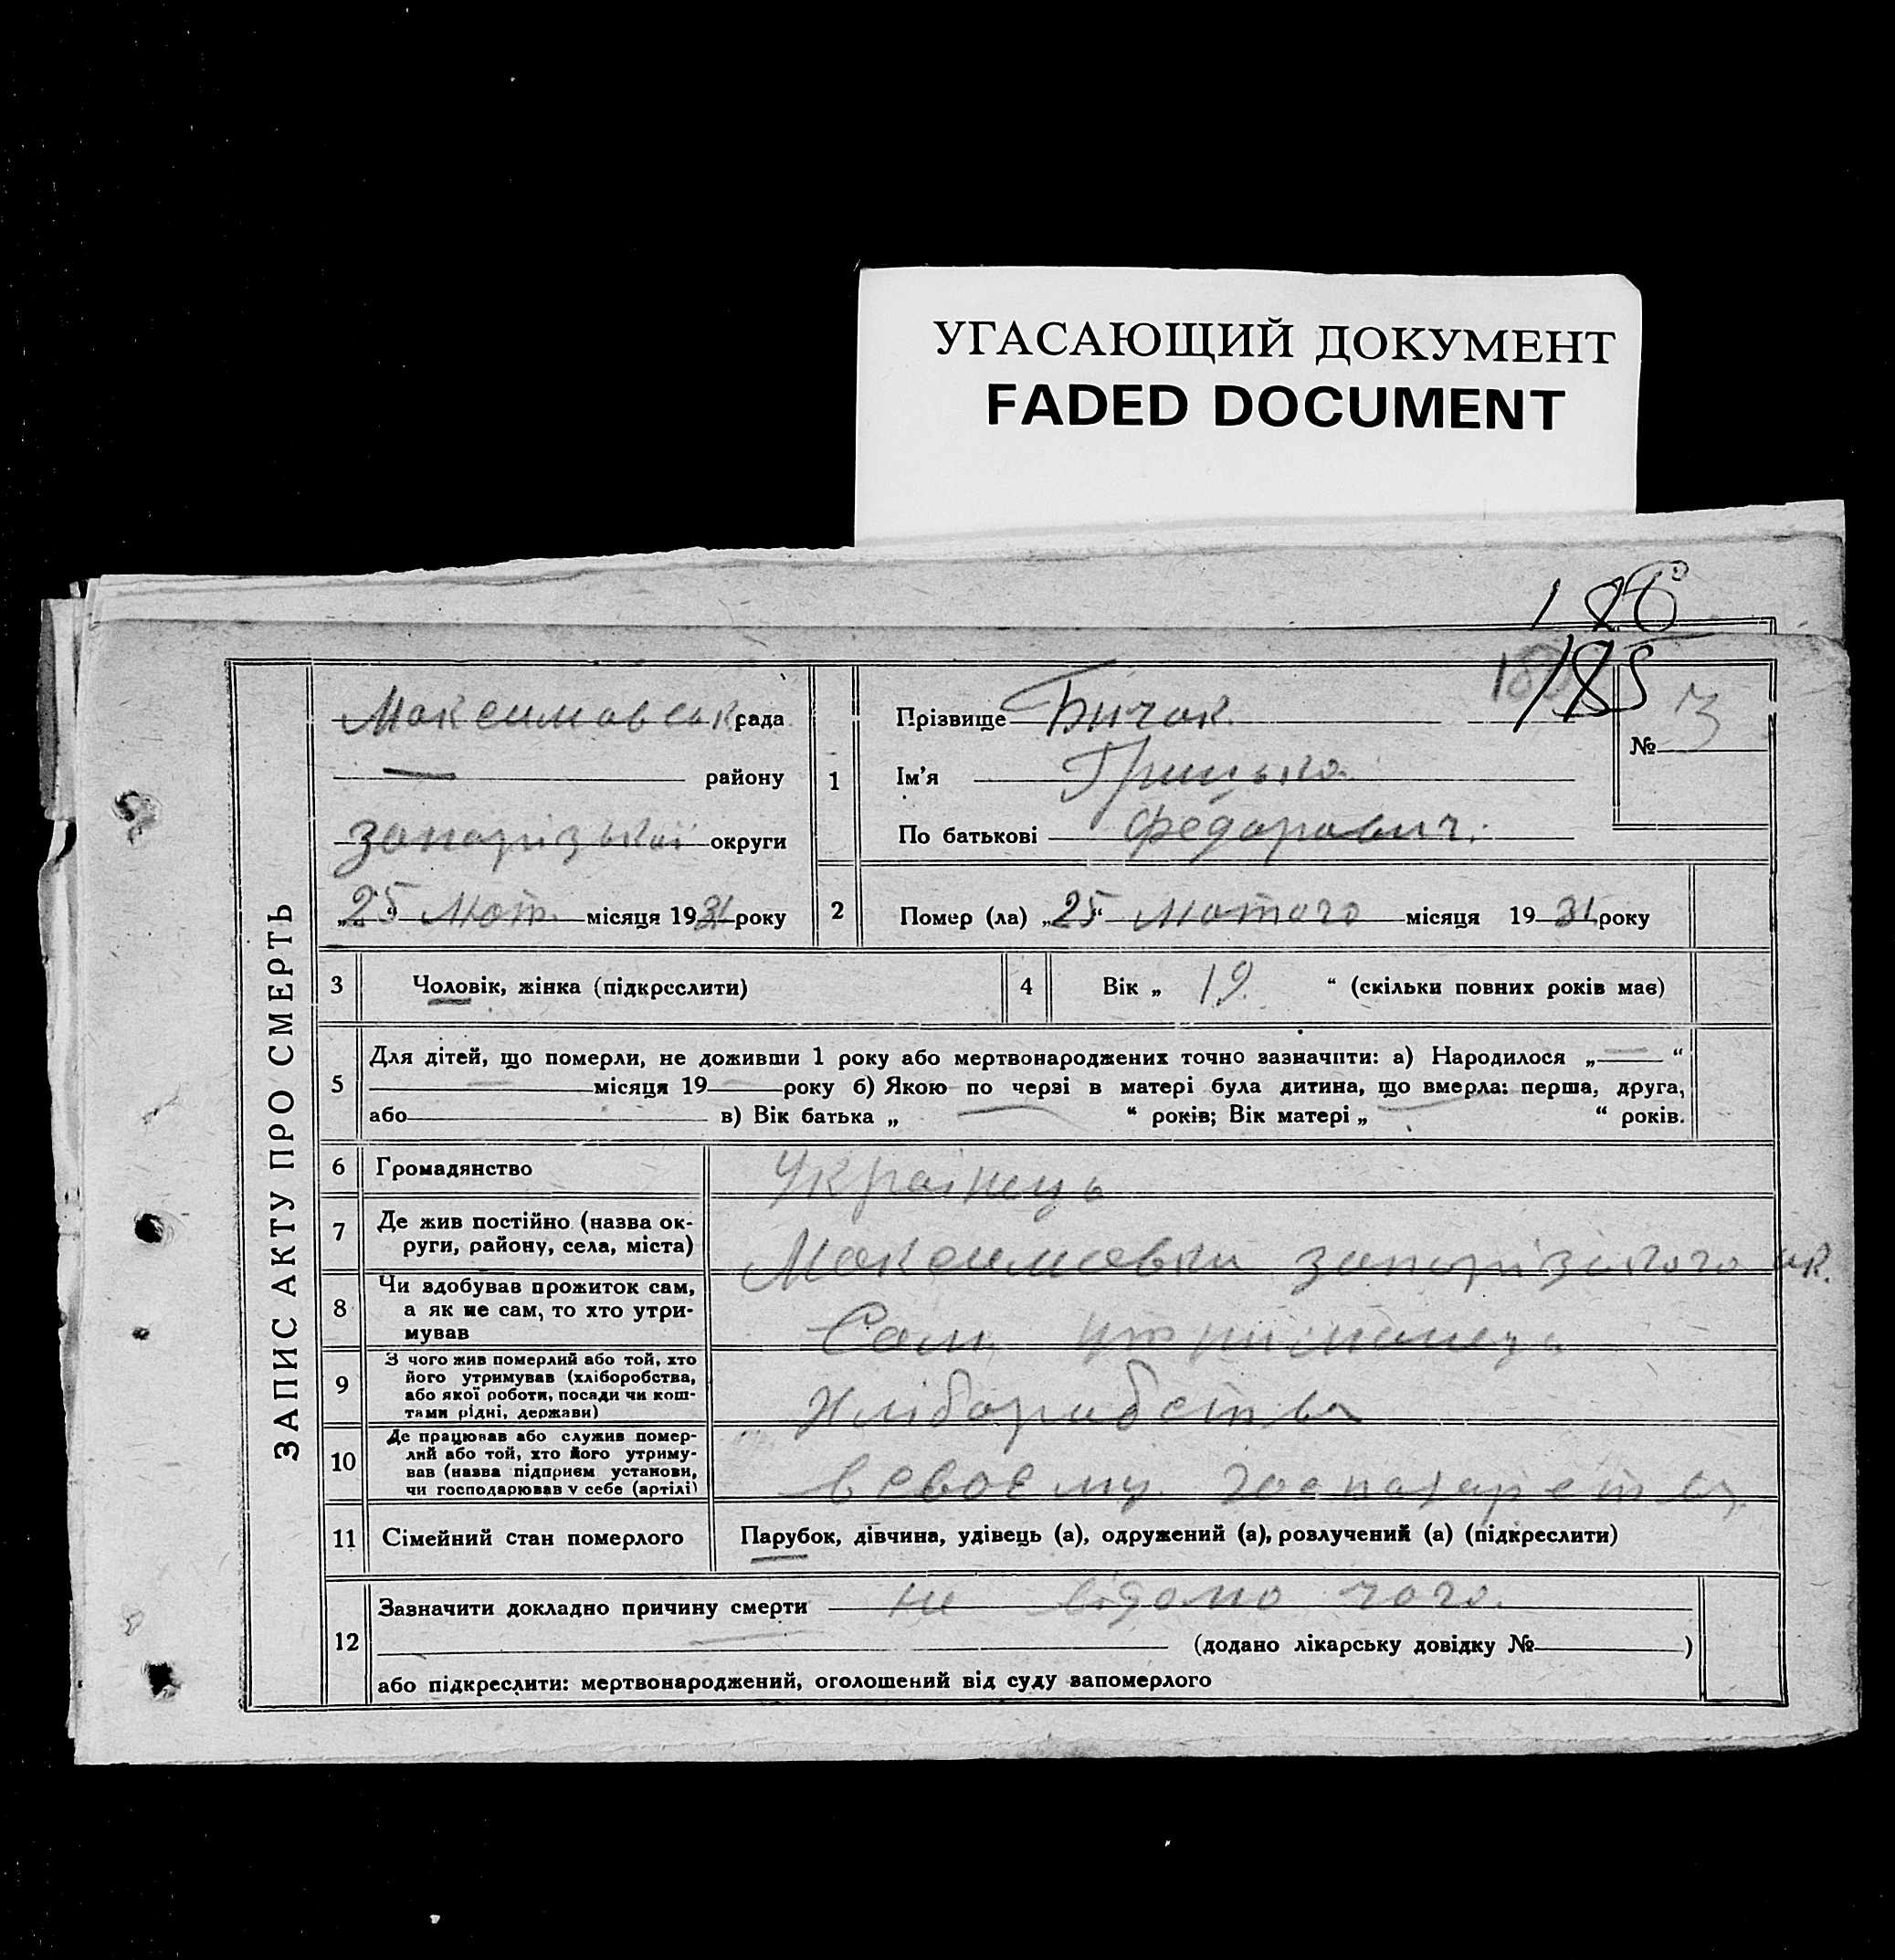 УГАСАЮЩИЙ ДОКУМЕНТ
FADED DOCUMENT
186
185
ЗАПИС АКТУ ПРО СМЕРТЬ
Максимовськ рада
району
Запорізької округи
„25“ Лют. місяця 1931 року
1
Прізвище Бичок.
Ім'я Грицько.
По батькові Федорович.
№ 3
2 Помер (ла) „25“ Лютого місяця 1931 року
3 Чоловік, жінка (підкреслити)
4 Вік „19“ (скільки повних років має)
5 Для дітей, що померли, не доживши 1 року або мертвонароджених точно зазначити: а) Народилося „—“
місяця 19— року б) Якою по черзі в матері була дитина, що вмерла: перша, друга,
або в) Вік батька „ “ років; Вік матері „ “ років.
6 Громадянство Українець
7 Де жив постійно (назва ок-
руги, району, села, міста) Максимовки Запорізького ок.
8 Чи здобував прожиток сам,
а як не сам, то хто утри-
мував Сам
9 З чого жив померлий або той, хто
його утримував (хліборобства,
або якої роботи, посади чи кош-
тами рідні, держави) Хліборобства
10 Де працював або служив помер-
лий або той, хто його утриму-
вав (назва підприєм установи,
чи господарював у себе (артілі) в своєму господарству.
11 Сімейний стан померлого Парубок, дівчина, удівець (а), одружений (а), розлучений (а) (підкреслити)
12 Зазначити докладно причину смерти не відомо чого.
(додано лікарську довідку № )
або підкреслити: мертвонароджений, оголошений від суду запомерлого